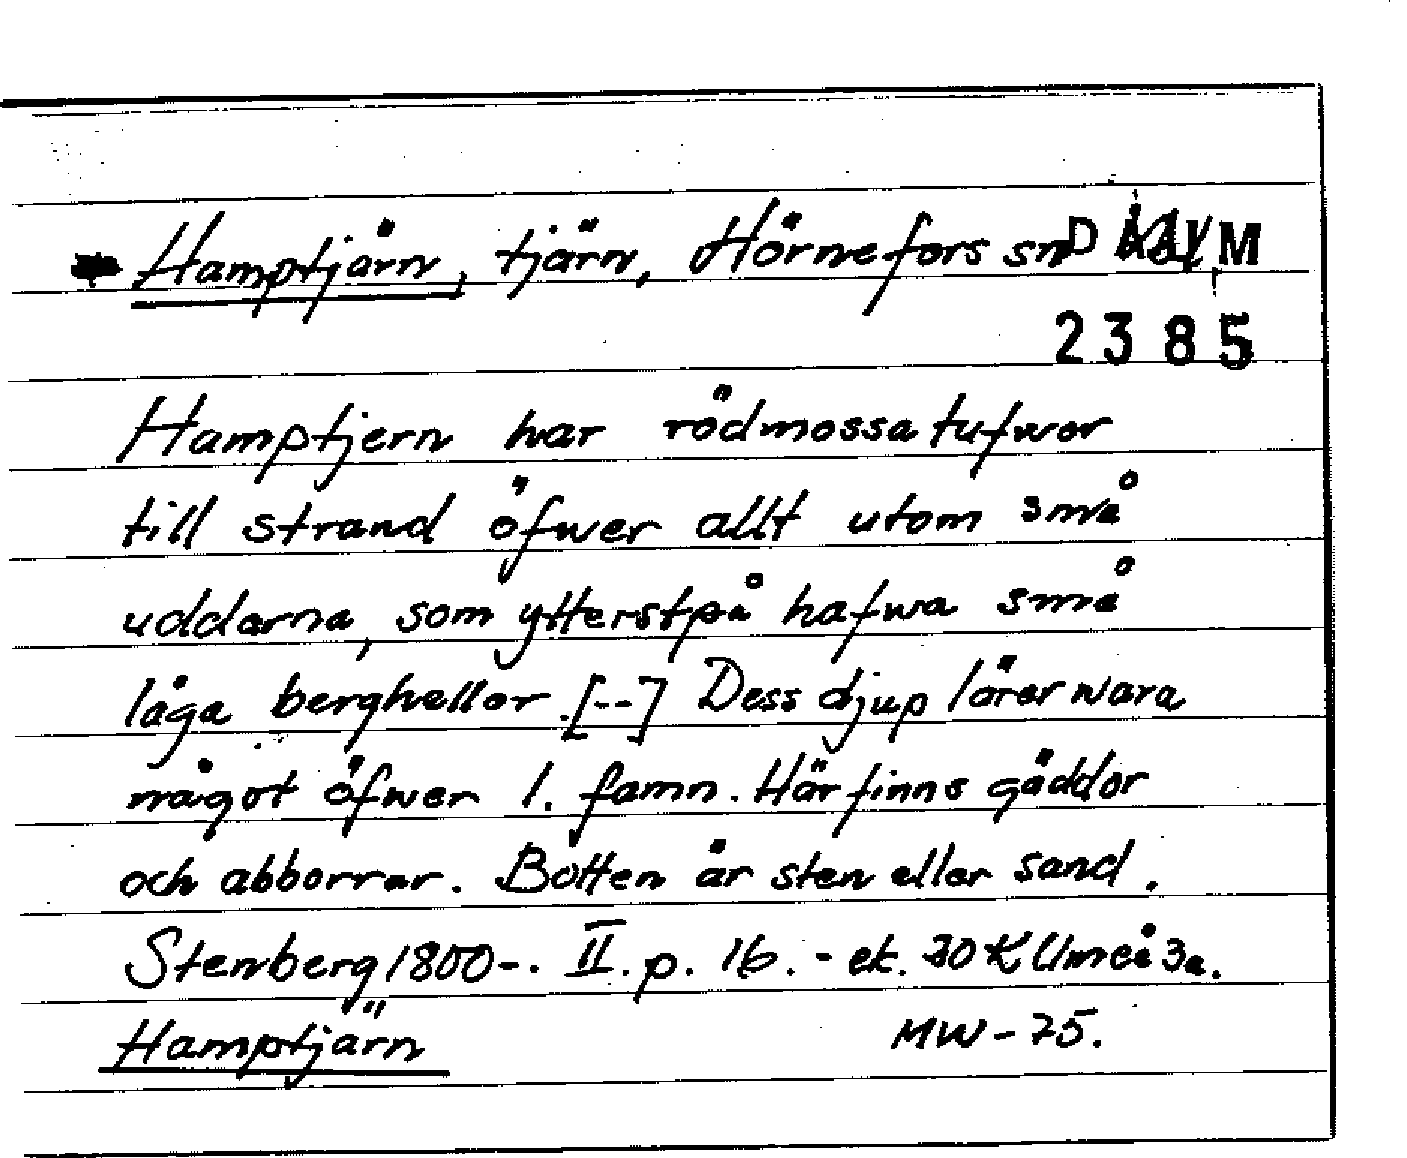 Hamptjärn, tjärn, Hörnefors sn
2385
Hamptjern har rödmossatufwor
till strand öfwer allt utom små
uddarna, som ytterstpå hafwa små
låga berghellor. [--] Dess djup lärer wara
något öfwer 1. famn. Här finns gäddor
och abborrar. Botten är sten eller sand.
Stenberg 1800-. II. p. 16. - ek. 20 K Umeå 3a.
Hamptjärn MW - 75.